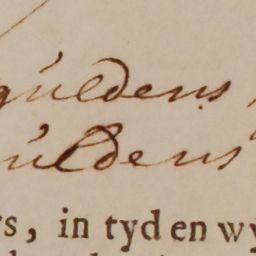 guldens
guldens
rs, in tyd en wy